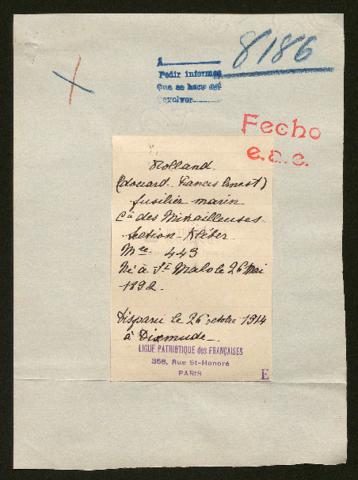 A
8186
Pedir informes
Que se hace del
devolver
Fecho
e.a.c.
Rolland
(Edouard Francis Ernest)
fusilier marin
Cie des Mitrailleuses
Section Kléber
Mle 443
Né à St Malo le 26 Mai
1892
Disparu le 26 octobre 1914
à Dixmude
LIGUE PATRIOTIQUE des FRANÇAISES
358, Rue St-Honoré
PARIS
E